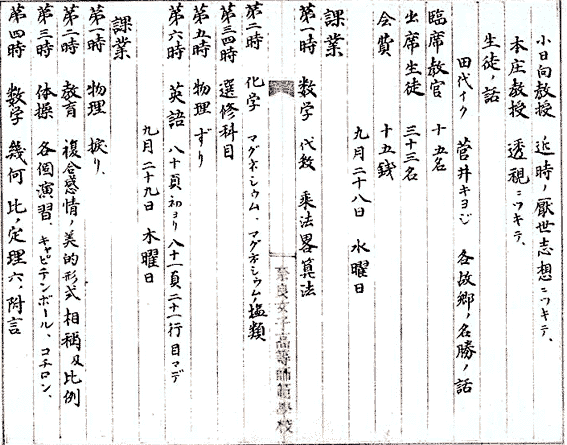 小日向教授　近時ノ厭世志想ニツキテ、
本庄教授　透視ニツキテ、
生徒ノ話
田代イク　菅井キヨジ　各故郷ノ名勝ノ話
臨席教官　十五名
出席生徒　三十三名
会費　十五銭
九月二十八日　水曜日
課業
第一時　数学　代数　乗法畧算法
奈良女子高等師範學校
第二時　化学　マグネシウム、マグネシウムノ塩類
第三四時　選修科目
第五時　物理　ずり
第六時　英語　八十頁初ヨリ八十一頁二十一行目マデ
九月二十九日　木曜日
課業
第一時　物理　捩り、
第二時　教育　複合感情ノ美的形式　相稱及比例
第三時　体操　各個演習、キャピテンボール、コチロン、
第四時　数学　幾何　比ノ定理六、附言